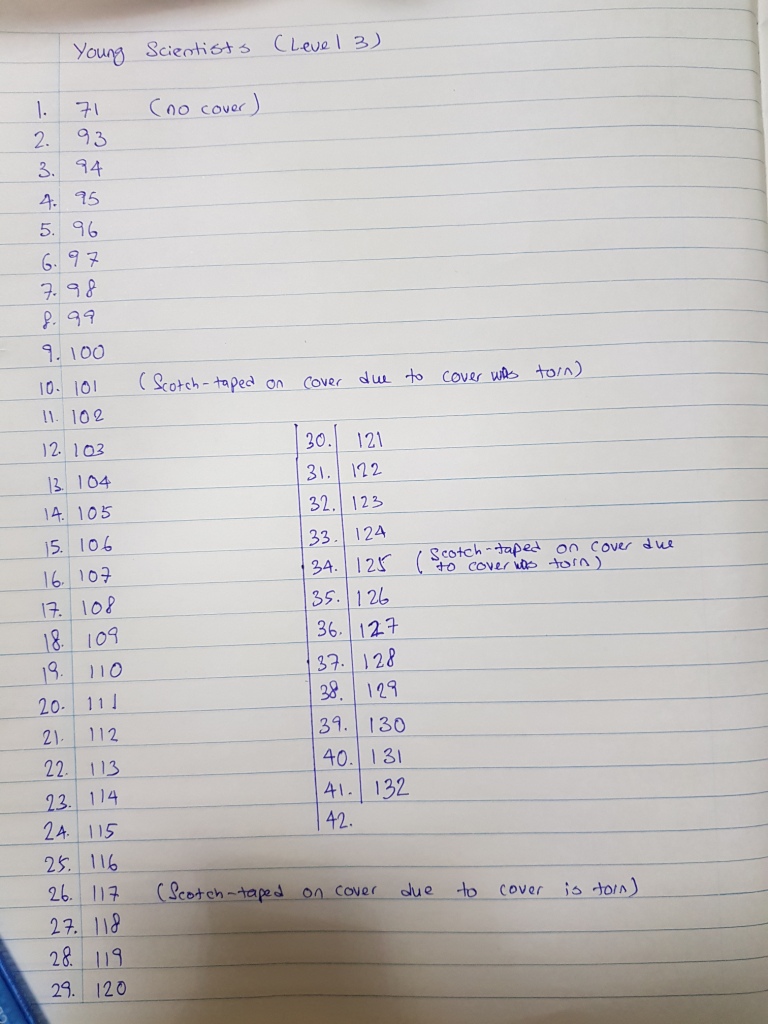 Young Scientists (Level 3)
1. 71 (no cover)
2. 93
3. 94
4. 95
5. 96
6. 97
7. 98
8. 99
9. 100
10. 101 (Scotch-taped on cover due to cover was torn)
11. 102
12. 103
13. 104
14. 105
15. 106
16. 107
17. 108
18. 109
19. 110
20. 111
21. 112
22. 113
23. 114
24. 115
25. 116
26. 117 (Scotch-taped on cover due to cover is torn)
27. 118
28. 119
29. 120
30. 121
31. 122
32. 123
33. 124
34. 125 (Scotch-taped on cover due
to cover was torn)
35. 126
36. 127
37. 128
38. 129
39. 130
40. 131
41. 132
42.